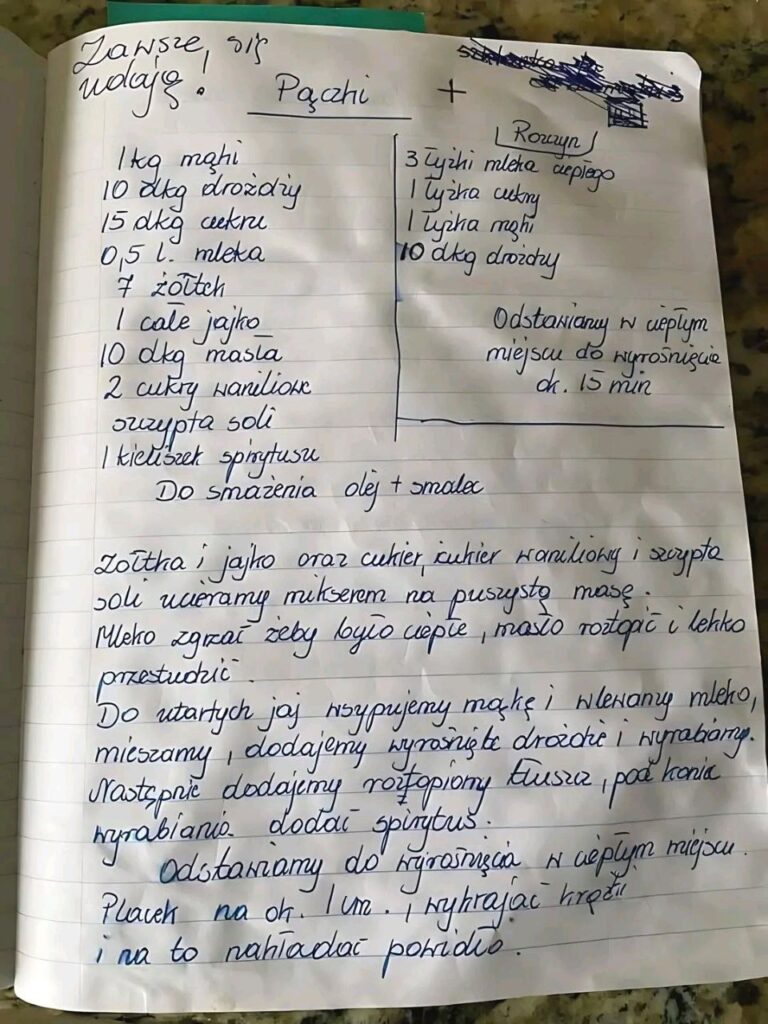 Zawsze się
udają!
Pączki +
1 kg mąki
10 dkg drożdży
15 dkg cukru
0,5 l. mleka
7 żółtek
1 całe jajko
10 dkg masła
2 cukry waniliowe
szczypta soli
1 kieliszek spirytusu
Do smażenia olej + smalec
Rozczyn
3 łyżki mleka ciepłego
1 łyżka cukry
1 łyżka mąki
10 dkg drożdży
Odstawiamy w ciepłym
miejscu do wyrośnięcia
ok. 15 min
Żółtka i jajko oraz cukier, cukier waniliowy i szczypta
soli ucieramy mikserem na puszystą masę.
Mleko zgrzać żeby było ciepłe, masło roztopić i lekko
przestudzić.
Do utartych jaj wsypujemy mąkę i wlewamy mleko,
mieszamy, dodajemy wyrośnięte drożdże i wyrabiamy.
Następnie dodajemy roztopiony tłuszcz, pod koniec
wyrabiania dodać spirytus.
Odstawiamy do wyrośnięcia w ciepłym miejscu.
Placek na ok. 1 cm., wykrajać krążki
i na to nakładać powidło.